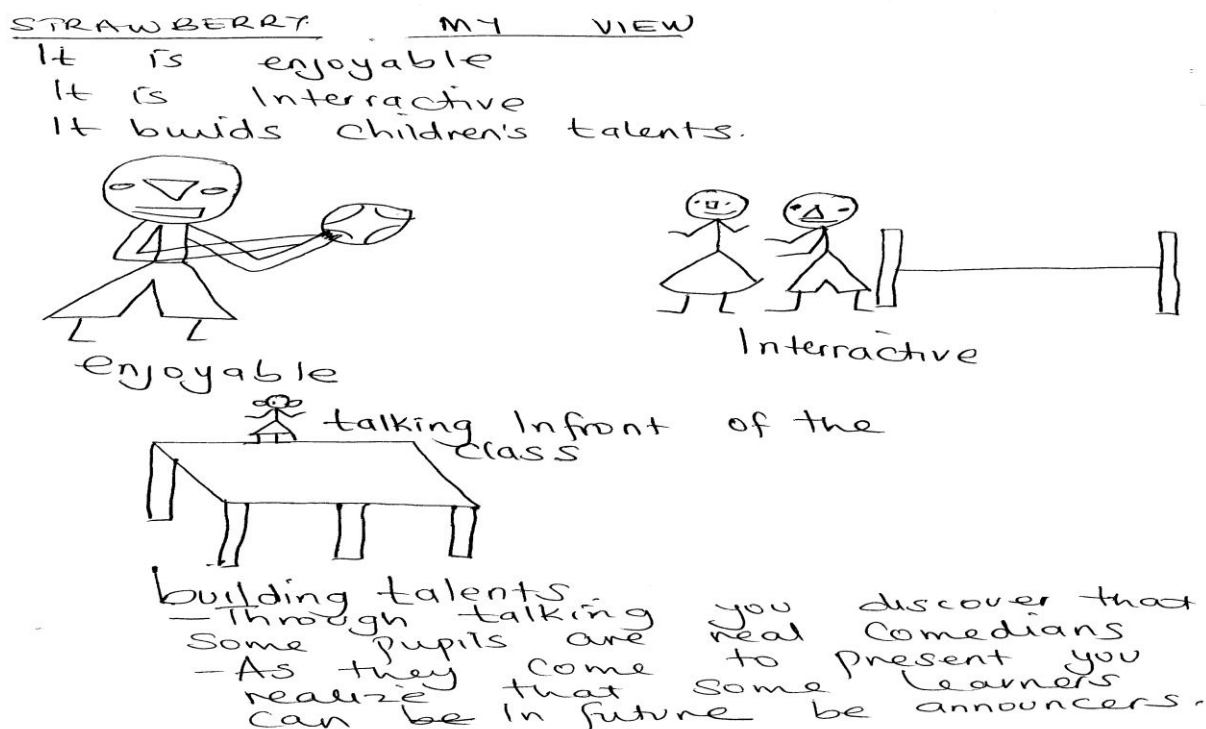 STRAWBERRY. MY VIEW
It is enjoyable
It is Interractive
It buids children's talents.
enjoyable
Interractive
talking Infront of the
class
building talents.
- Through talking you discover that
some pupils are real comedians
- As they come to present you
realize that some learners
can be in future be announcers.